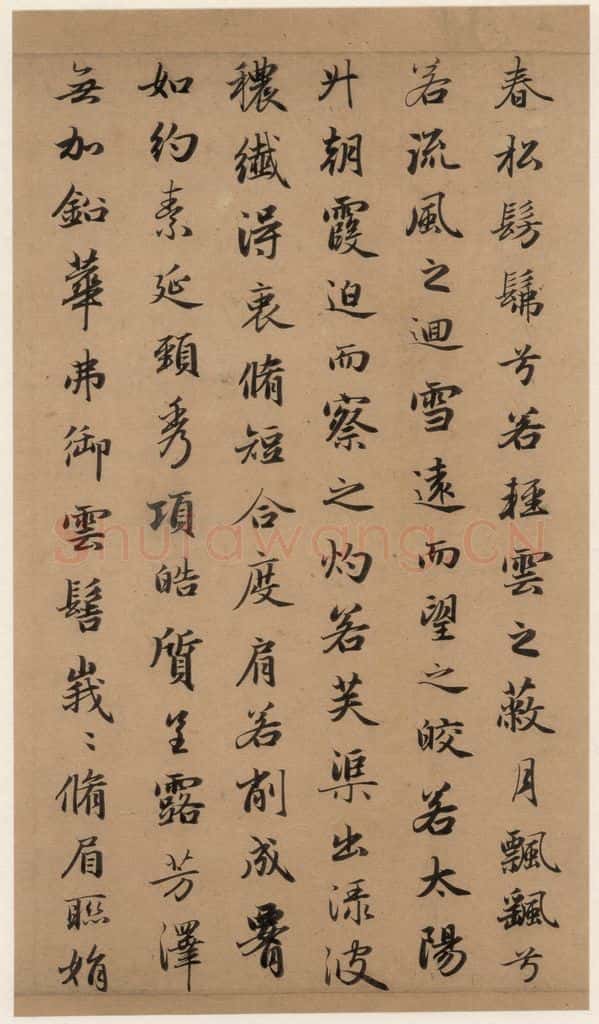 春松髣髴兮若輕雲之蔽月飄颻兮
若流風之迴雪遠而望之皎若太陽
升朝霞迫而察之灼若芙渠出渌波
穠纖得衷脩短合度肩若削成
如約素延頸秀項皓質呈露芳澤
無加鉛華弗御雲髻峩〻脩眉聯娟
Shufawang.CN